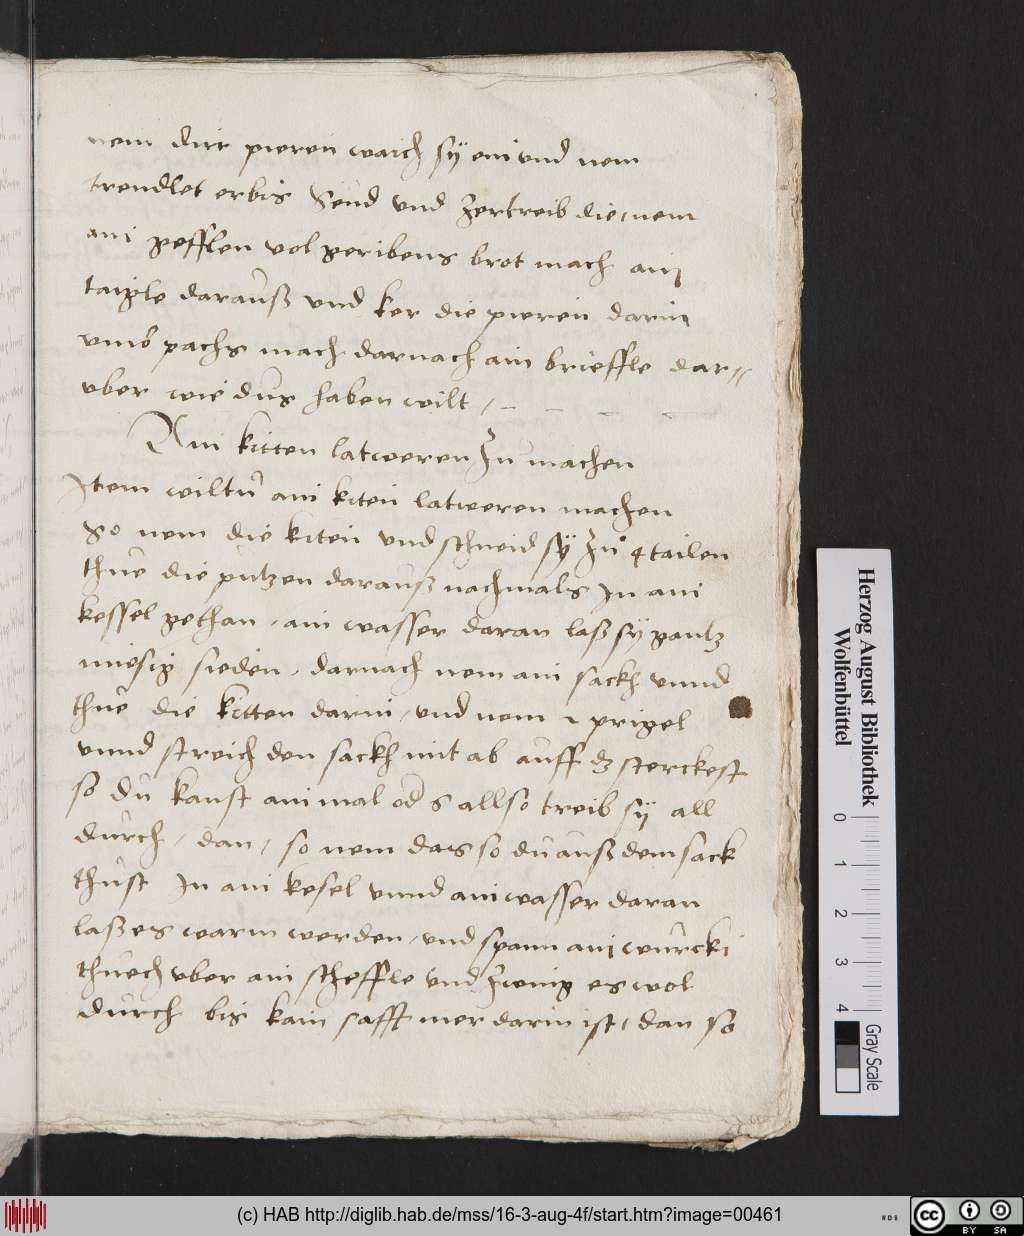 nem dirr pieren waich sÿ ein vnd nem
trendlet erbis Seud vnd Zertreib die, nem
ain pefflen vol geribens brot mach ain
taigle darauß vnd ker die pieren darin
vnnd pachs mach darnach ain brieffle dar//
vber wie dus haben wilt /
Ain kitten latweren Zu machen
Item wiltu ain kiten latweren machen
So nem die kiten vnd schneid sÿ Zu 4 tailen
thue die putzen darauß nachmals In ain
kessel gethan, ain wasser daran laß sÿ gantz
miesig sieden, darnach nem ain sackh vnnd
thue die kitten darin, vnd nem 1 prigel
vnnd streich den sackh mit ab auff dz sterckest
so du kanst ain mal od 6 allso treib sÿ all
durch, dan, so nem das so du auß dem sack
thust In ain kesel vnnd ain wasser daran
laß es warm werden, vnd spann ain wurcki
thuech vber ain scheffle vnd Zwing es wol
durch bis kain safft mer darin ist, dan so
Herzog August Bibliothek
Wolfenbüttel
0 1 2 3 4
Gray Scale
(c) HAB http://diglib.hab.de/mss/16-3-aug-4f/start.htm?image=00461
WDB
cc BY SA